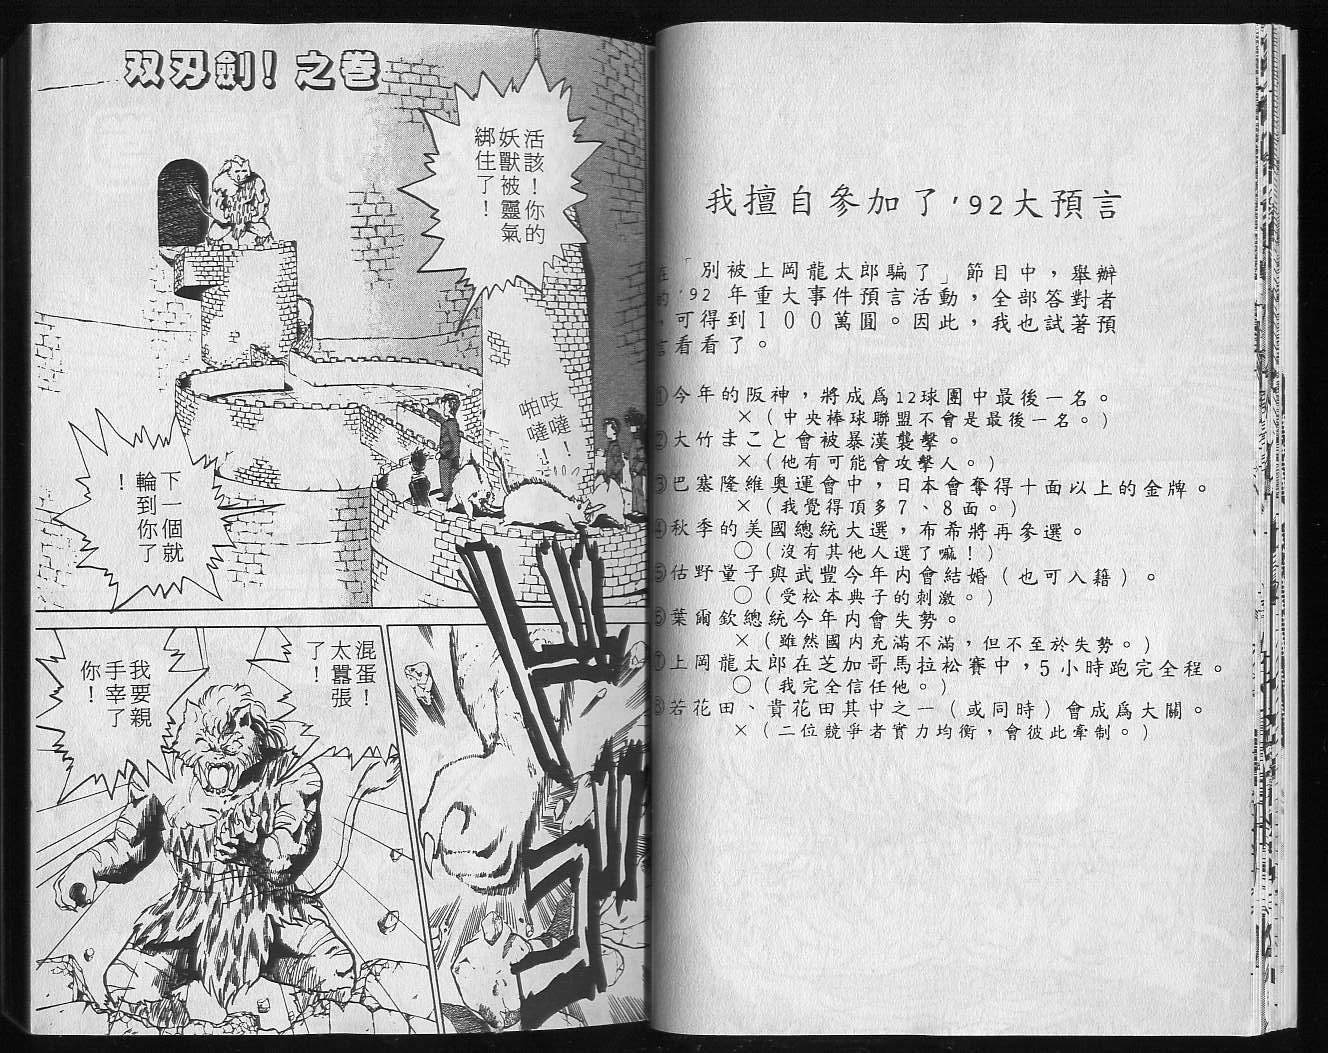 双刃劍！之卷
活該！你的
妖獸被靈氣
綁住了！
吱噠！
啪噠！
下一個就
輪到你了
！
混蛋！
太囂張
了！
我要親
手宰了
你！
我擅自參加了'92大預言
「別被上岡龍太郎騙了」節目中，舉辦
'92 年重大事件預言活動，全部答對者
可得到１００萬圓。因此，我也試著預
言看看了。
①今年的阪神，將成爲12球團中最後一名。
×（中央棒球聯盟不會是最後一名。）
②大竹まこと會被暴漢襲擊。
×（他有可能會攻擊人。）
③巴塞隆維奧運會中，日本會奪得十面以上的金牌。
×（我覺得頂多７、８面。）
④秋季的美國總統大選，布希將再參選。
○（沒有其他人選了嘛！）
⑤估野量子與武豐今年內會結婚（也可入籍）。
○（受松本典子的刺激。）
⑥葉爾欽總統今年內會失勢。
×（雖然國內充滿不滿，但不至於失勢。）
⑦上岡龍太郎在芝加哥馬拉松賽中，5小時跑完全程。
○（我完全信任他。）
⑧若花田、貴花田其中之一（或同時）會成爲大關。
×（二位競爭者實力均衡，會彼此牽制。）